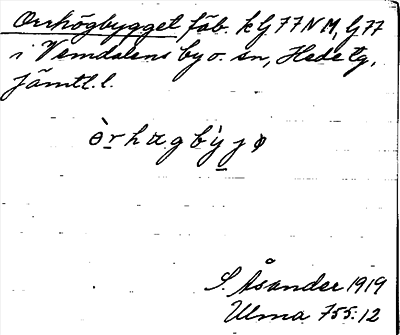 Orrhögbygget fäb. kG77NM, G77
i Vemdalens by o. sn, Hede tg,
Jämtl. l.
òrhægbỳjø
S. Åsander 1919
Ulma 755:12